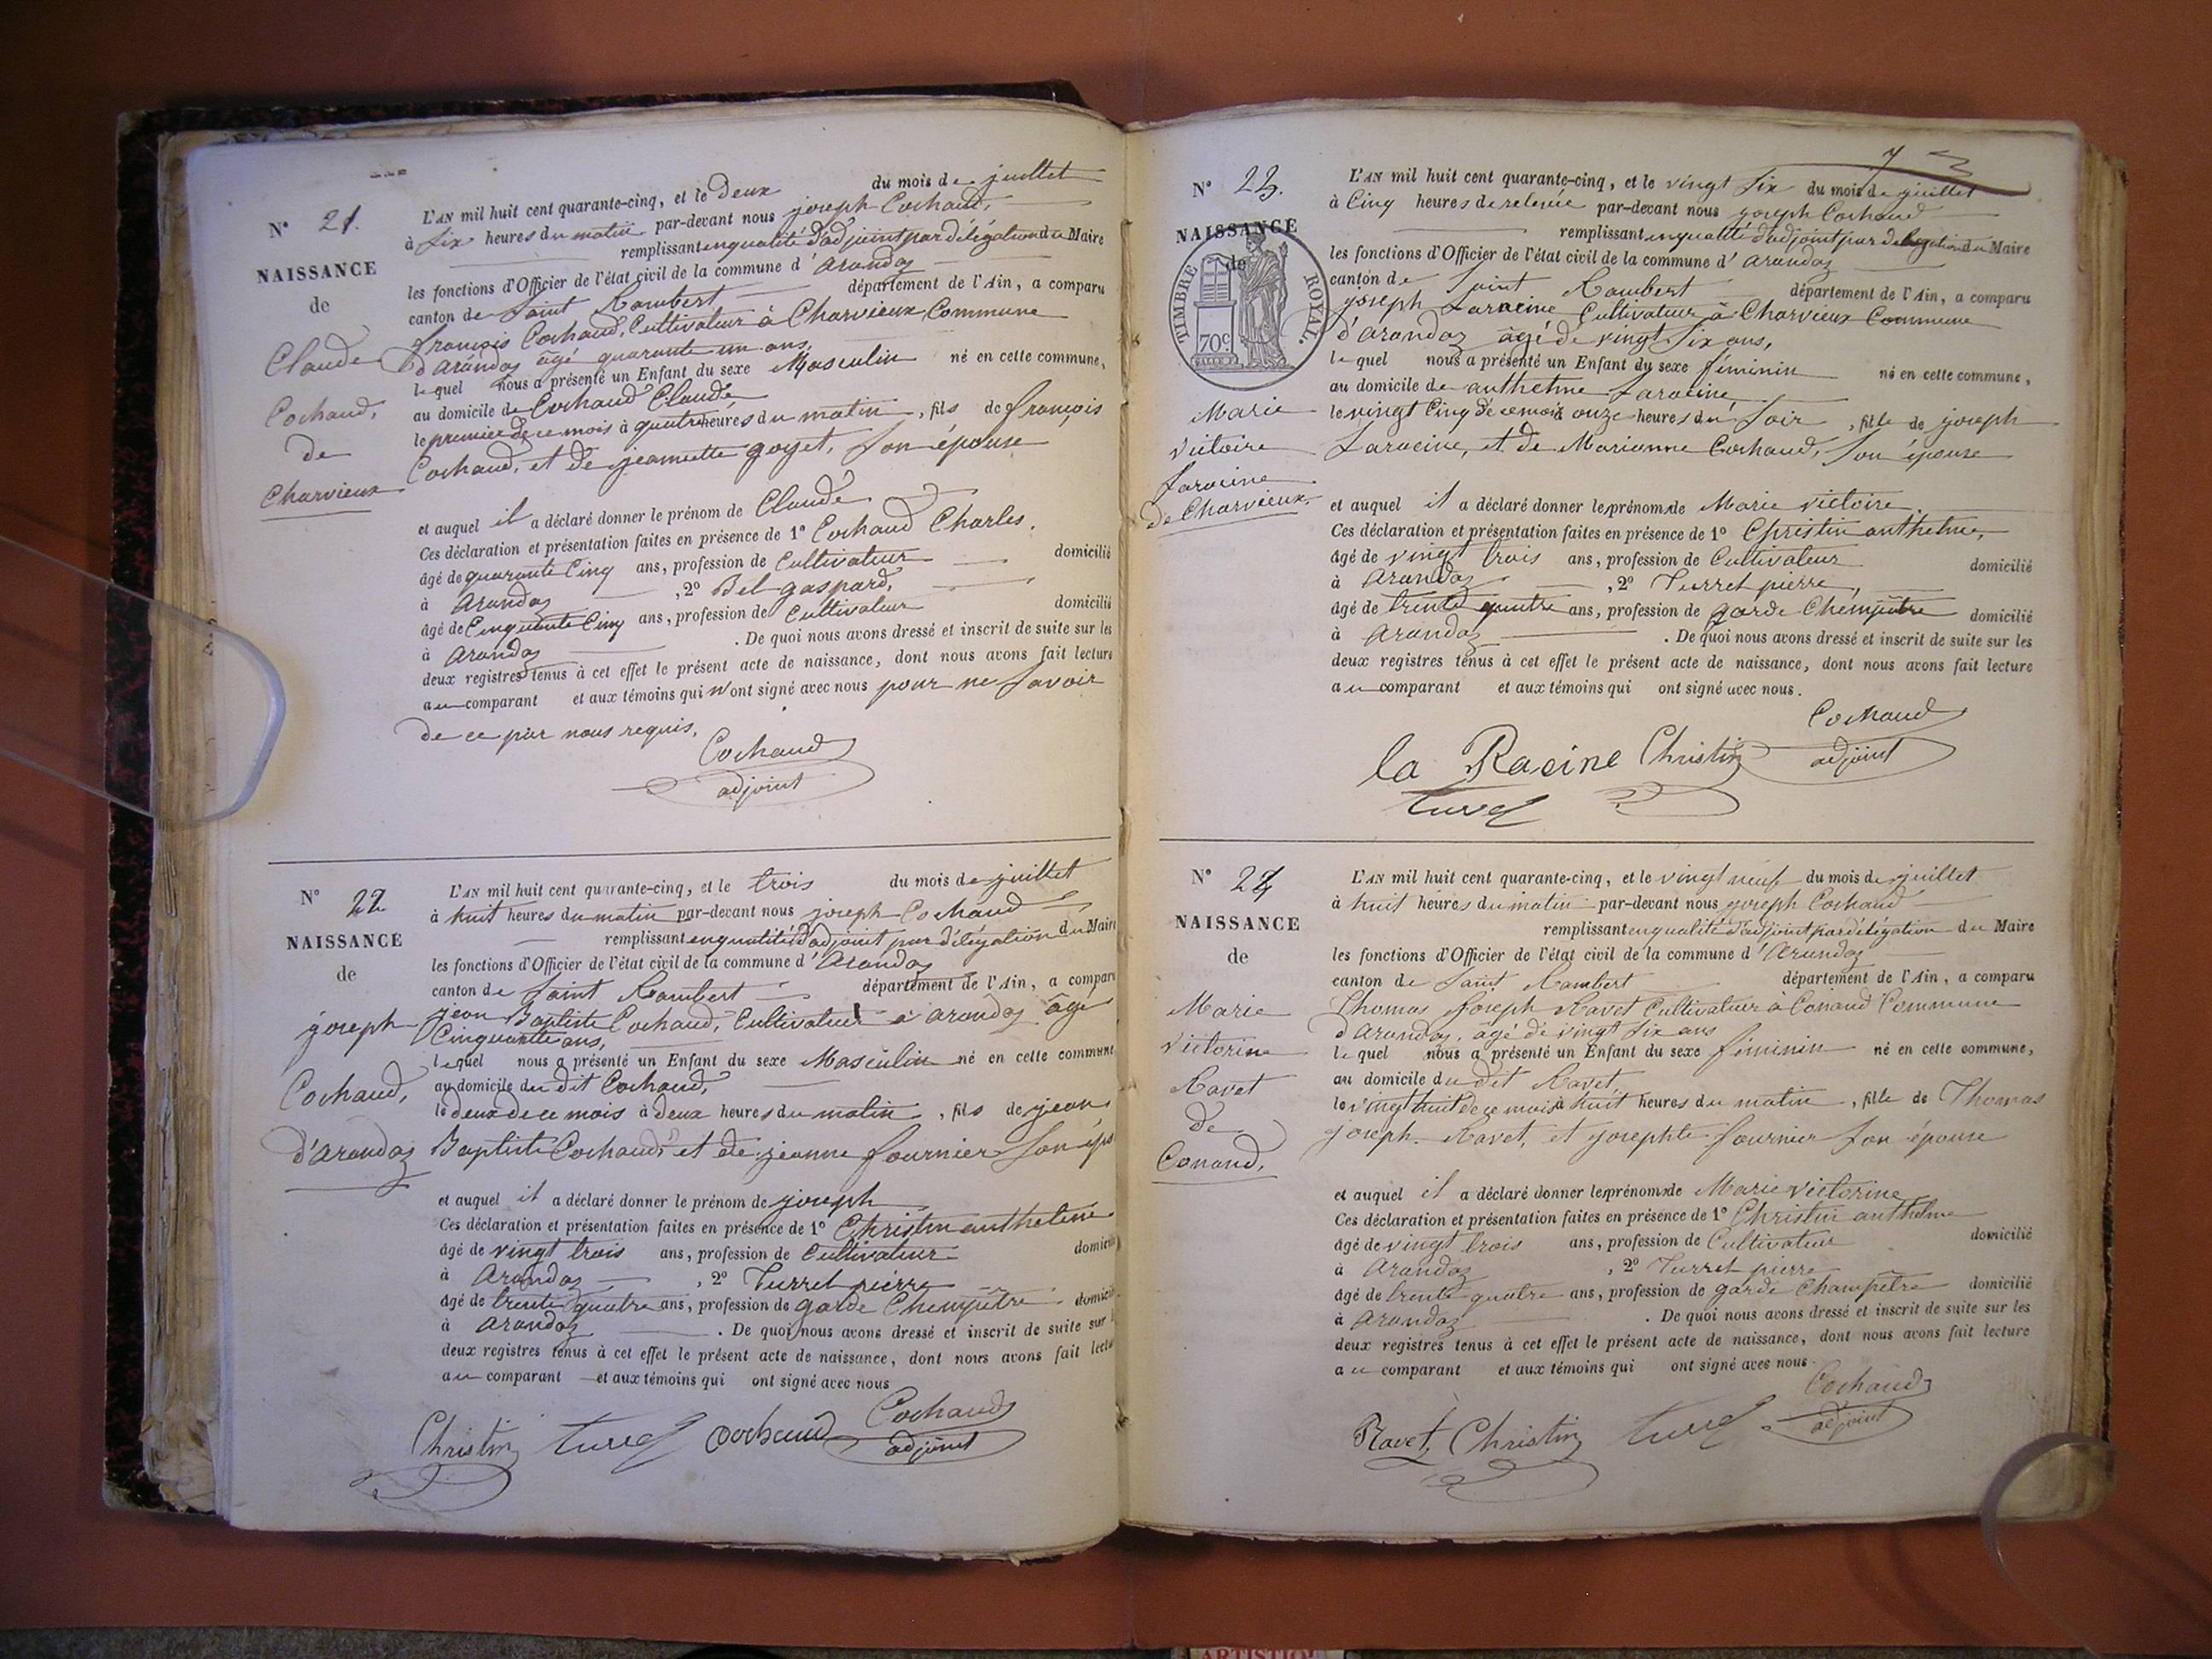 N° 21.
NAISSANCE
de
Claude
Cochaud,
de
Charvieux
L'AN mil huit cent quarante-cinq, et le deux du mois de juillet
à six heures du matin par-devant nous joseph Cochaud,
remplissant en qualité d'adjoint par délégation du Maire
les fonctions d'Officier de l'état civil de la commune d'arandas
canton de Saint Rambert département de l'Ain, a comparu
françois Cochaud, Cultivateur à Charvieux Commune
d'arandas âgé quarante un ans,
lequel nous a présenté un Enfant du sexe Masculin né en cette commune,
au domicile de Cochaud Claude
le premier de ce mois à quatre heures du matin, fils de françois
Cochaud, et de jeannette goyet, son épouse
et auquel il a déclaré donner le prénom de Claude
Ces déclaration et présentation faites en présence de 1° Cochaud Charles.
âgé de quarante Cinq ans, profession de Cultivateur domicilié
à arandas , 2° Bel gaspard,
âgé de Cinquante Cinq ans, profession de Cultivateur domicilié
à arandas . De quoi nous avons dressé et inscrit de suite sur les
deux registres tenus à cet effet le présent acte de naissance, dont nous avons fait lecture
au comparant et aux témoins qui n'ont signé avec nous pour ne savoir
de ce par nous requis.
Cochaud
adjoint
N° 22
NAISSANCE
de
joseph
Cochaud,
d'arandas
L'AN mil huit cent quarante-cinq, et le trois du mois de juillet
à huit heures du matin par-devant nous joseph Cochaud
remplissant en qualité d'adjoint par délégation du Maire
les fonctions d'Officier de l'état civil de la commune d'arandas
canton de Saint Rambert département de l'Ain, a comparu
jean Baptiste Cochaud, Cultivateur à arandas âgé
Cinquante ans,
lequel nous a présenté un Enfant du sexe Masculin né en cette commune
au domicile du dit Cochaud,
le deux de ce mois à deux heures du matin, fils de jean
Baptiste Cochaud, et de jeanne fournier son éps
et auquel il a déclaré donner le prénom de joseph
Ces déclaration et présentation faites en présence de 1° Christin anthelme
âgé de vingt trois ans, profession de Cultivateur domicilié
à arandas , 2° Turrel pierre
âgé de trente quatre ans, profession de garde Chempêtre domicilié
à arandas . De quoi nous avons dressé et inscrit de suite sur
deux registres tenus à cet effet le présent acte de naissance, dont nous avons fait lectu
au comparant et aux témoins qui ont signé avec nous
Christin turrel Cochaud Cochaud
adjoint
7
N° 23.
NAISSANCE
de
TIMBRE ROYAL.
70c.
Marie
Victoire
Laracine
de Charvieux.
L'AN mil huit cent quarante-cinq, et le vingt six du mois de juillet
à Cinq heures de relevée par-devant nous joseph Cochaud
remplissant en qualité d'adjoint par délégation du Maire
les fonctions d'Officier de l'état civil de la commune d'arandas
canton de Saint Rambert département de l'Ain, a comparu
joseph Laracine Cultivateur à Charvieux Commune
d'arandas âgé de vingt six ans,
lequel nous a présenté un Enfant du sexe féminin né en cette commune,
au domicile de anthelme Laracine,
le vingt Cinq de ce mois à onze heures du soir, fille de joseph
Laracine, et de Marianne Cochaud, son épouse
et auquel il a déclaré donner les prénoms de Marie victoire
Ces déclaration et présentation faites en présence de 1° Christin anthelme,
âgé de vingt trois ans, profession de Cultivateur domicilié
à arandas , 2° Turrel pierre,
âgé de trente quatre ans, profession de garde Chempêtre domicilié
à arandas . De quoi nous avons dressé et inscrit de suite sur les
deux registres tenus à cet effet le présent acte de naissance, dont nous avons fait lecture
au comparant et aux témoins qui ont signé avec nous.
Cochaud
la Racine Christin adjoint
turrel
N° 24
NAISSANCE
de
Marie
Victorine
Ravet
de
Conand,
L'AN mil huit cent quarante-cinq, et le vingt neuf du mois de juillet
à huit heures du matin par-devant nous joseph Cochaud
remplissant en qualité d'adjoint par délégation du Maire
les fonctions d'Officier de l'état civil de la commune d'arandas
canton de Saint Rambert département de l'Ain, a comparu
Thomas Joseph Ravet Cultivateur à Conand Commune
d'arandas, âgé de vingt six ans
lequel nous a présenté un Enfant du sexe féminin né en cette commune,
au domicile du dit Ravet,
le vingt huit de ce mois à huit heures du matin, fille de Thomas
joseph. Ravet, et josephte fournier son épouse
et auquel il a déclaré donner les prénoms de Marie victorine
Ces déclaration et présentation faites en présence de 1° Christin anthelme
âgé de vingt trois ans, profession de Cultivateur domicilié
à arandas , 2° Turrel pierre
âgé de trente quatre ans, profession de garde Champêtre domicilié
à arandas . De quoi nous avons dressé et inscrit de suite sur les
deux registres tenus à cet effet le présent acte de naissance, dont nous avons fait lecture
au comparant et aux témoins qui ont signé avec nous.
Cochaud
Ravet, Christin turrel adjoint